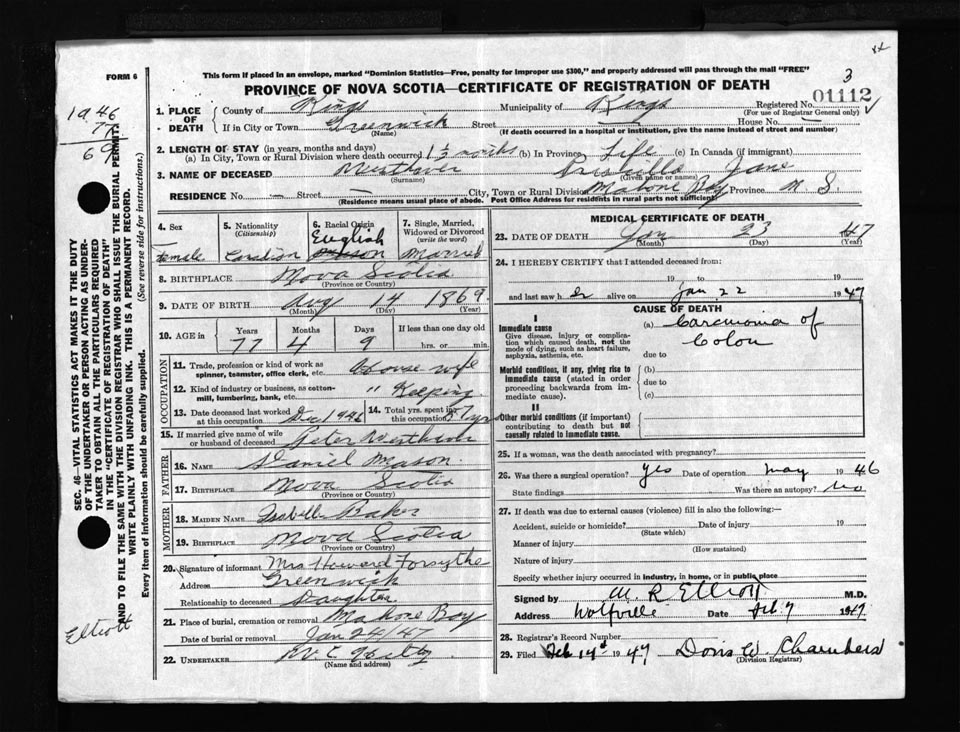 FORM 6
This form if placed in an envelope, marked "Dominion Statistics—Free, penalty for improper use $300," and properly addressed will pass through the mail "FREE"
PROVINCE OF NOVA SCOTIA—CERTIFICATE OF REGISTRATION OF DEATH
3
01112
1946
77
69
1. PLACE OF DEATH County of Kings Municipality of Kings Registered No.
(For use of Registrar General only)
If in City or Town Greenwich Street — House No. —
(Name) (If death occurred in a hospital or institution, give the name instead of street and number)
2. LENGTH OF STAY (in years, months and days)
(a) In City, Town or Rural Division where death occurred 1½ months (b) In Province Life (c) In Canada (if immigrant)
3. NAME OF DECEASED Priscilla Jane
(Surname) (Given name or names)
RESIDENCE No. — Street — City, Town or Rural Division Mahone Bay Province N. S.
(Residence means usual place of abode. Post Office Address for residents in rural parts not sufficient)
4. Sex Female
5. Nationality (Citizenship) Canadian
6. Racial Origin English
7. Single, Married, Widowed or Divorced (write the word) Married
8. BIRTHPLACE Nova Scotia
(Province or Country)
9. DATE OF BIRTH Aug 14 1869
(Month) (Day) (Year)
10. AGE in Years Months Days If less than one day old
77 4 9 hrs. or min.
OCCUPATION
11. Trade, profession or kind of work as spinner, teamster, office clerk, etc. House wife
12. Kind of industry or business, as cotton-mill, lumbering, bank, etc. " Keeping
13. Date deceased last worked at this occupation Dec 1946 14. Total yrs. spent in this occupation
15. If married give name of wife or husband of deceased Peter
FATHER
16. NAME Daniel Mason
17. BIRTHPLACE Nova Scotia
(Province or Country)
MOTHER
18. MAIDEN NAME Isabelle Baker
19. BIRTHPLACE Nova Scotia
(Province or Country)
20. Signature of informant Mrs Howard Forsythe
Address Greenwich
Relationship to deceased Daughter
21. Place of burial, cremation or removal Mahone Bay
Date of burial or removal Jan 24/47
22. UNDERTAKER
(Name and address)
MEDICAL CERTIFICATE OF DEATH
23. DATE OF DEATH Jan 23 47
(Month) (Day) (Year)
24. I HEREBY CERTIFY that I attended deceased from:
19 to 19
and last saw h er alive on Jan 22 1947
CAUSE OF DEATH
I
Immediate cause
Give disease, injury or complication which caused death, not the mode of dying, such as heart failure, asphyxia, asthenia, etc.
(a) Carcinoma of Colon
due to
Morbid conditions, if any, giving rise to immediate cause (stated in order proceeding backwards from immediate cause).
(b)
due to
(c)
II
Other morbid conditions (if important) contributing to death but not causally related to immediate cause.
25. If a woman, was the death associated with pregnancy?
26. Was there a surgical operation? yes Date of operation May 1946
State findings Was there an autopsy? No
27. If death was due to external causes (violence) fill in also the following:—
Accident, suicide or homicide? Date of injury 19
(State which)
Manner of injury
(How sustained)
Nature of injury
Specify whether injury occurred in industry, in home, or in public place
Signed by M. R Elliott M.D.
Address Wolfville Date Feb 7 1947
28. Registrar's Record Number
29. Filed Feb 14th 1947 Doris W. Chambers
(Division Registrar)
SEC. 46—VITAL STATISTICS ACT MAKES IT THE DUTY
OF THE UNDERTAKER OR PERSON ACTING AS UNDER-
TAKER TO OBTAIN ALL THE PARTICULARS REQUIRED
IN THE "CERTIFICATE OF REGISTRATION OF DEATH"
AND TO FILE THE SAME WITH THE DIVISION REGISTRAR WHO SHALL ISSUE THE BURIAL PERMIT.
WRITE PLAINLY WITH UNFADING INK. THIS IS A PERMANENT RECORD.
Every item of information should be carefully supplied. (See reverse side for instructions.)
Elliott